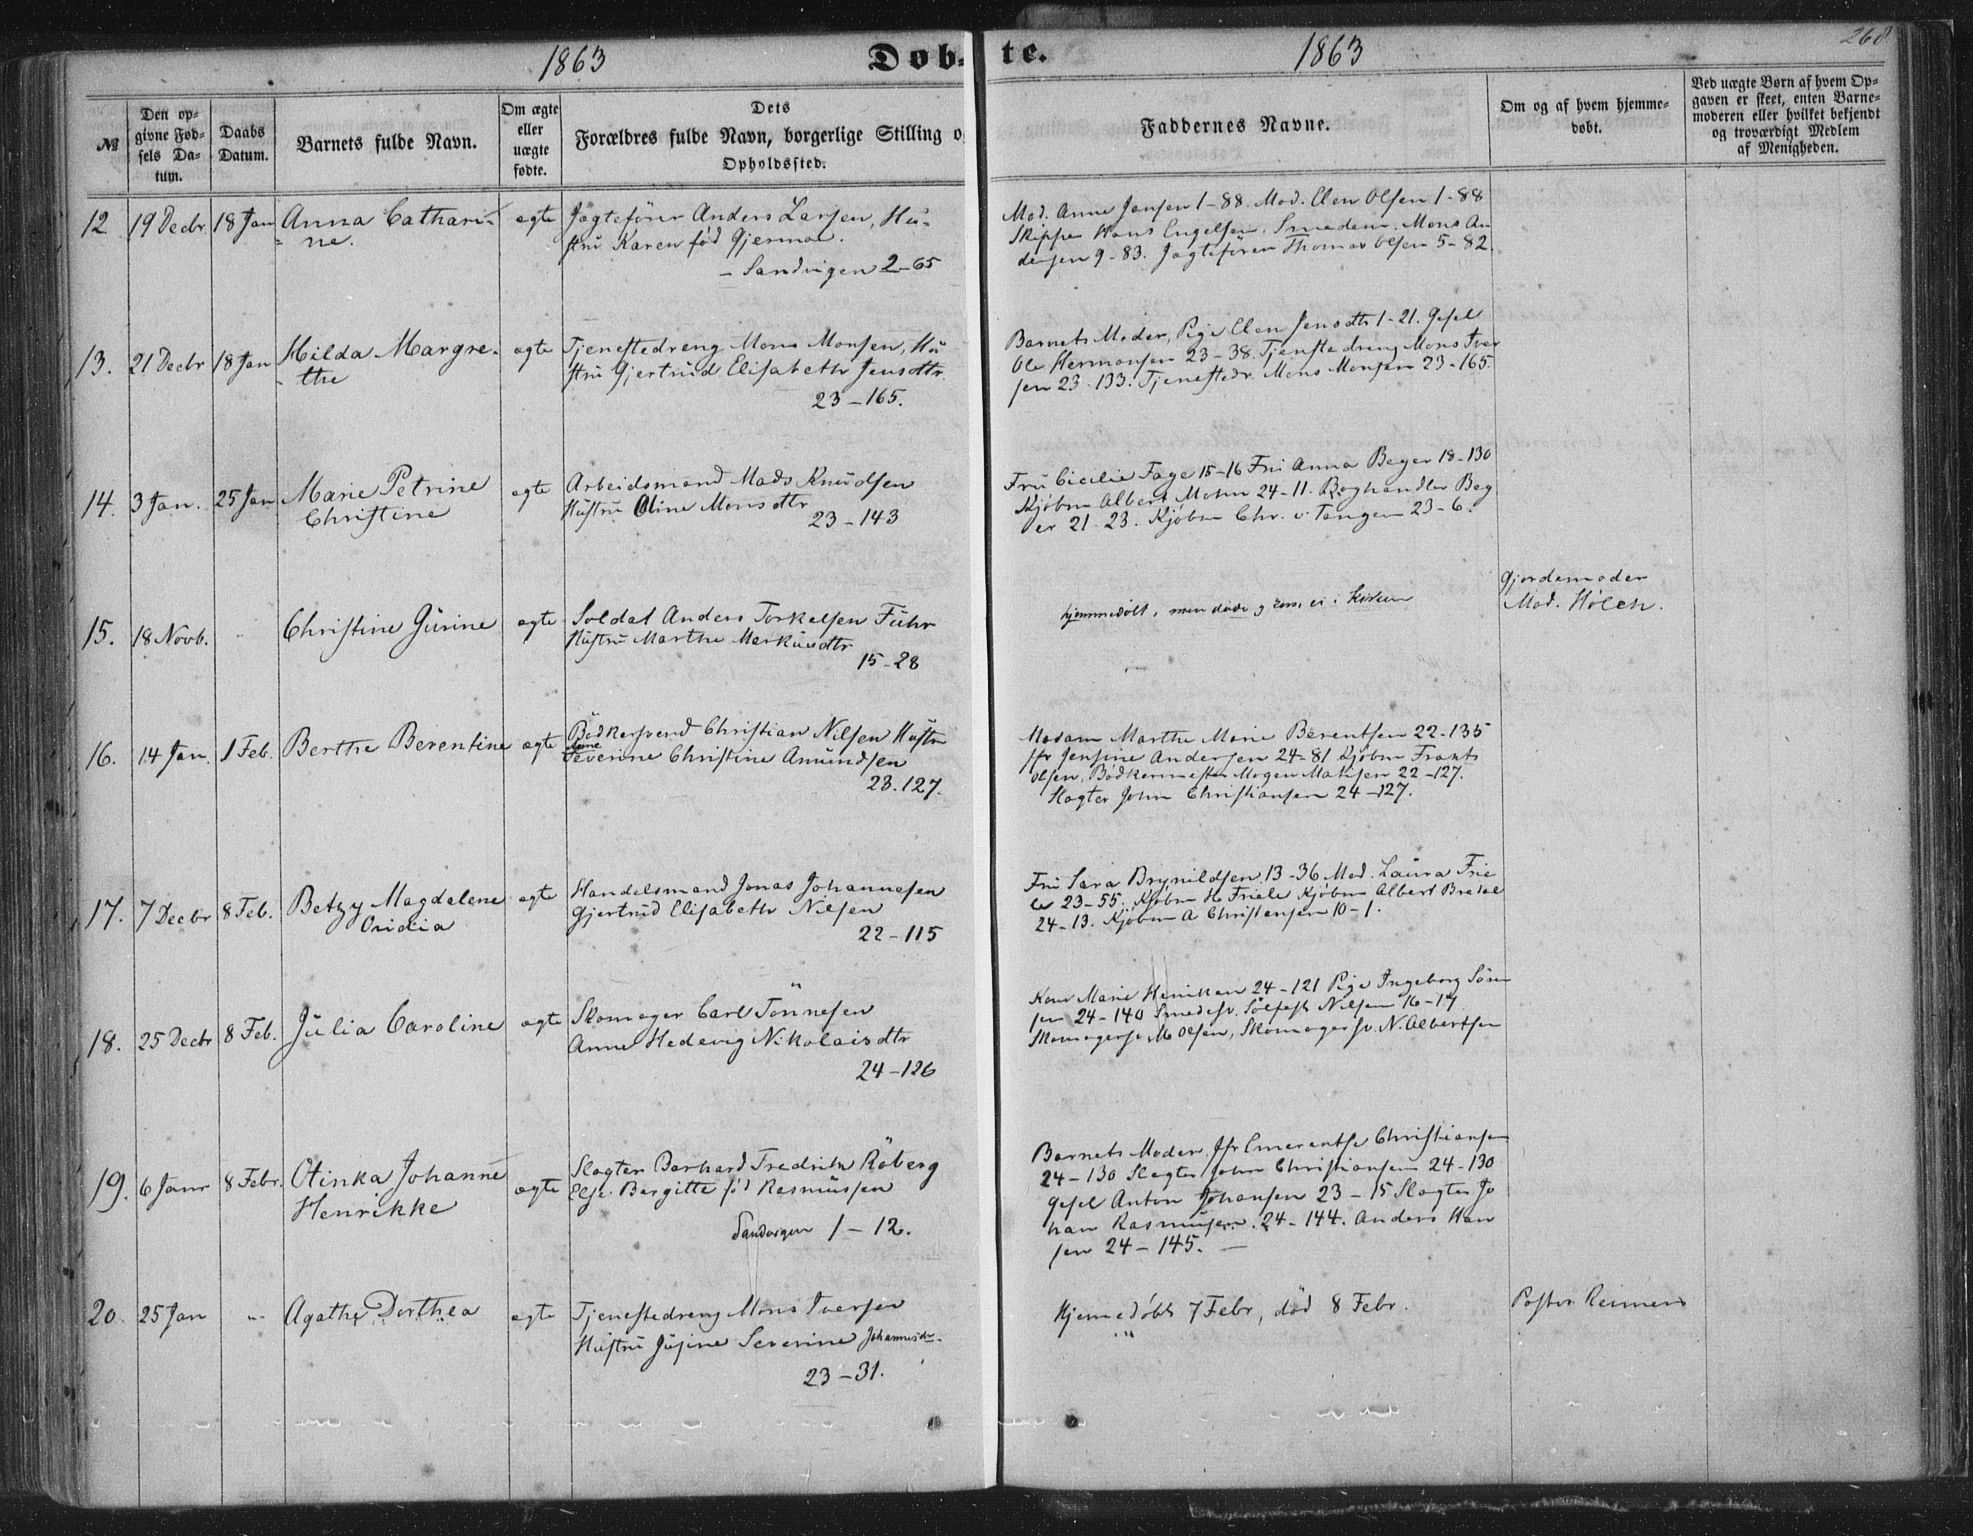 1863 Døb-
te. 1863 268
№ Den op-givne Fød-sels Da-tum. Daabs Datum. Barnets fulde Navn. Om ægte eller uægte fødte. Dets Forældres fulde Navn, borgerlige Stilling o Opholdssted.
Faddernes Navne. Om og af hvem hjemme-døbt. Ved uægte Børn af hvem Op-gaven er skeet, enten Barne-moderen eller hvilket bekjendt og troværdigt Medlem af Menigheden.
12 19 Decbr. 18 Jan Anna Cathari- ægte Jagtefører Anders Larsen, Hu-
ne. stru Karen fød Gjermoe.
- Sandvigen 2-65
Mad. Anne Jansen 1-88. Mad. Elen Olsen 1-88
Skipper Hans Engelsen. Smedem. Mons An
dersen 9-83. Jagtefører Thomas Olsen 5-82.
13. 21 Decbr 18 Jan Hilda Margre- ægte Tjenestedreng Mons Monsen, Hu
the stru Gjertrud Elisabeth Jensdtr
23-165.
Barnets Moder, Pige Elen Jensdtr 1-21. Gesel
Ole Hermansen 23-38. Tjenstedreng Mons Iver
sen 23-133. Tjenestedr. Mons Monsen 23-165.
14. 3 Jan. 25 Jan Marie Petrine ægte Arbeidsmand Mads Knudsen
Christine Hustru Oline Monsdtr
23-143
Fru Cicilie Fage 15-16 Fru Anna Beyer 18-130
Kjøbm Albert Mohn 24-11. Boghandler Bey
er 21-23. Kjøbm Chr. v. Tangen 23-6.
15. 18 Novb. Christine Gurine ægte Soldat Anders Torkelsen Fuhr
Hustru Marthe Markusdtr
15-28
hjemmedøbt, men døde ei i Kirken
Gjordemoder
Mad. Holch.
16. 14 Jan. 1 Feb. Berthe Berentine ægte Bødkersvend Christian Nilsen Hustru
Anne
Severine Christine Amundsen
23.127.
Madam Marthe Marie Berentsen 22-135
Jfr Jensine Andersen 24-81 Kjøbm Frants
Olsen, Bødkermester Mogen Matisen 22-127.
Slagter John Christiansen 24-127.
17. 7 Decbr 8 Feb. Betzy Magdalene ægte Handelsmand Jonas Johannesen
Ovidia Gjertrud Elisabeth Nilsen
22-115
Fru Sara Brynildsen 13-36 Mad. Laura Frie
le 23-55. Kjøbm H Friele Kjøbm Albert Brekke
24-13. Kjøbm A Christensen 10-1.
18. 25 Decbr 8 Feb. Julia Caroline ægte Skomager Carl Tønnesen
Anne Hedevig Nikolaisdtr
24-126
Kone Marie Henriksen 24-121 Pige Ingeborg Søren
sen 24-140 Smedesv. Sølfest Nilsen 16-17
Skomagersv. M Olsen, Skomagersv. N. Albertsen
19. 6 Janr 8 Febr. Otinka Johanne ægte Slagter Berhard Fredrik Røberg
Henrikke Else Bergitte fød Rasmussen
Sandvigen 1-12.
Barnets Moder, Jfr Emerentse Christiansen
24-130 Slagter John Christiansen 24-130
Gesel Anton Johansen 23-15 Slagter Jo
han Rasmussen 24-144. Anders Han
sen 24-145. -
20. 25 Jan " Agathe Dorthea ægte Tjenestedreng Mons Iversen
Hustru Jusine Severine Johannesdtr.
23-31.
Hjemedøbt 7 Febr, død 8 Febr.
Pastor Reimers